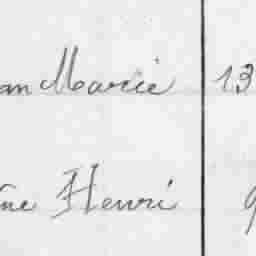 an Marie 13
ne Henri 9